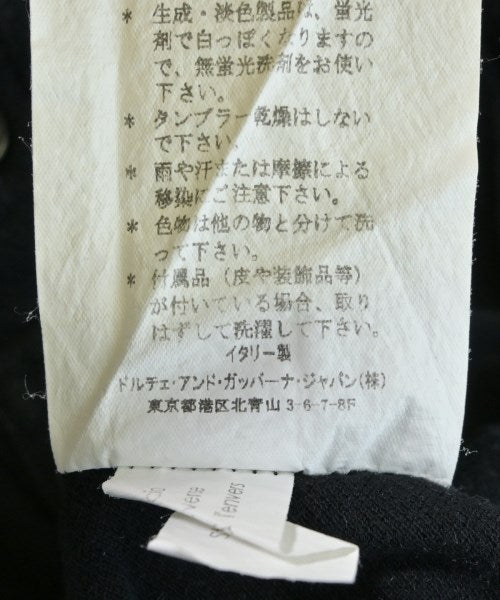 * 生成・淡色製品は、蛍光
剤で白っぽくなりますの
で、無蛍光洗剤をお使い
下さい。
* タンブラー乾燥はしない
で下さい。
* 雨や汗または摩擦による
移染にご注意下さい。
* 色物は他の物と分けて洗
って下さい。
* 付属品（皮や装飾品等）
が付いている場合、取り
はずして洗濯して下さい。
イタリー製
ドルチェ・アンド・ガッバーナ・ジャパン(株)
東京都港区北青山 3-6-7-8F
l'envers